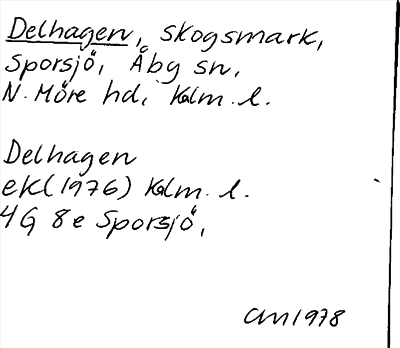 Delhagen, skogsmark,
Sporsjö, Åby sn,
N. Möre hd, Kalm. l.
Delhagen
ekl (1976) Kalm. l.
4G 8e Sporsjö,
CM 1978